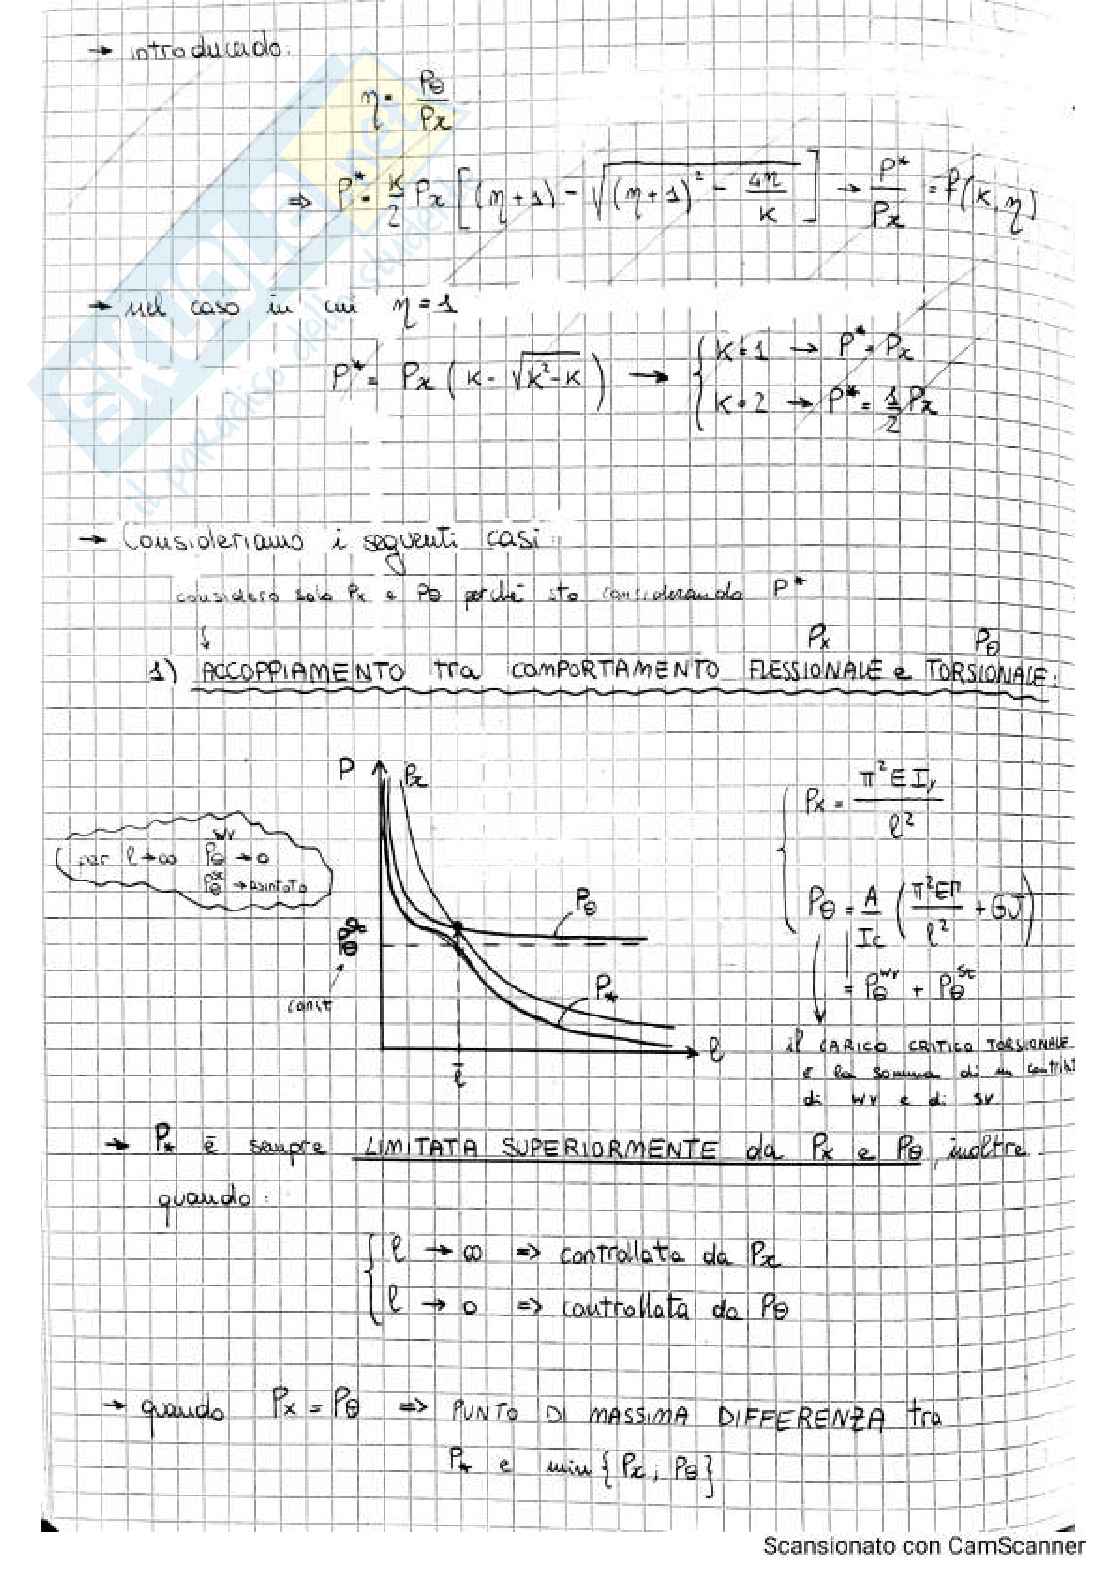 → introducendo:
η = Pθ / Px
⇒ P* = K/2 Px [(η+1) - √((η+1)² - 4η/K)] → P*/Px = f(K, η)
→ nel caso in cui η = 1
P* = Px (K - √(K²-K)) → { K=1 → P* = Px
K=2 → P* = 1/2 Px
→ Consideriamo i seguenti casi:
considero solo Px e Pθ perché sto considerando P*
↓ Px Pθ
1) ACCOPPIAMENTO tra COMPORTAMENTO FLESSIONALE e TORSIONALE:
P Px
Px = π²EI / l²
per l→∞ Pθ^wr → 0
Pθ^sv → asintoto
Pθ
Pθ = A/Ic (π²EΓ / l² + GJ)
= Pθ^wr + Pθ^sv
Pθ^sv
const
P*
l̄
l
il CARICO CRITICO TORSIONALE
è la somma di un
di wr e di sv
→ P* è sempre LIMITATA SUPERIORMENTE da Px e Pθ, inoltre
quando:
{ l → ∞ => controllata da Px
l → 0 => controllata da Pθ
→ quando Px = Pθ => PUNTO DI MASSIMA DIFFERENZA tra
P* e min {Px ; Pθ}
SKUOLA.net
il paradiso dello studente
Scansionato con CamScanner